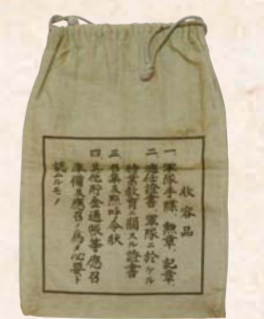 收容品
一、軍隊手牒、勳章、記章、
二、適任證書、軍隊ニ於ケル
特業教育ニ關スル證書
三、召集及點呼令狀
四、其他貯金通帳等應召
準備及應召ノ爲メ必要ト
認ムルモノ